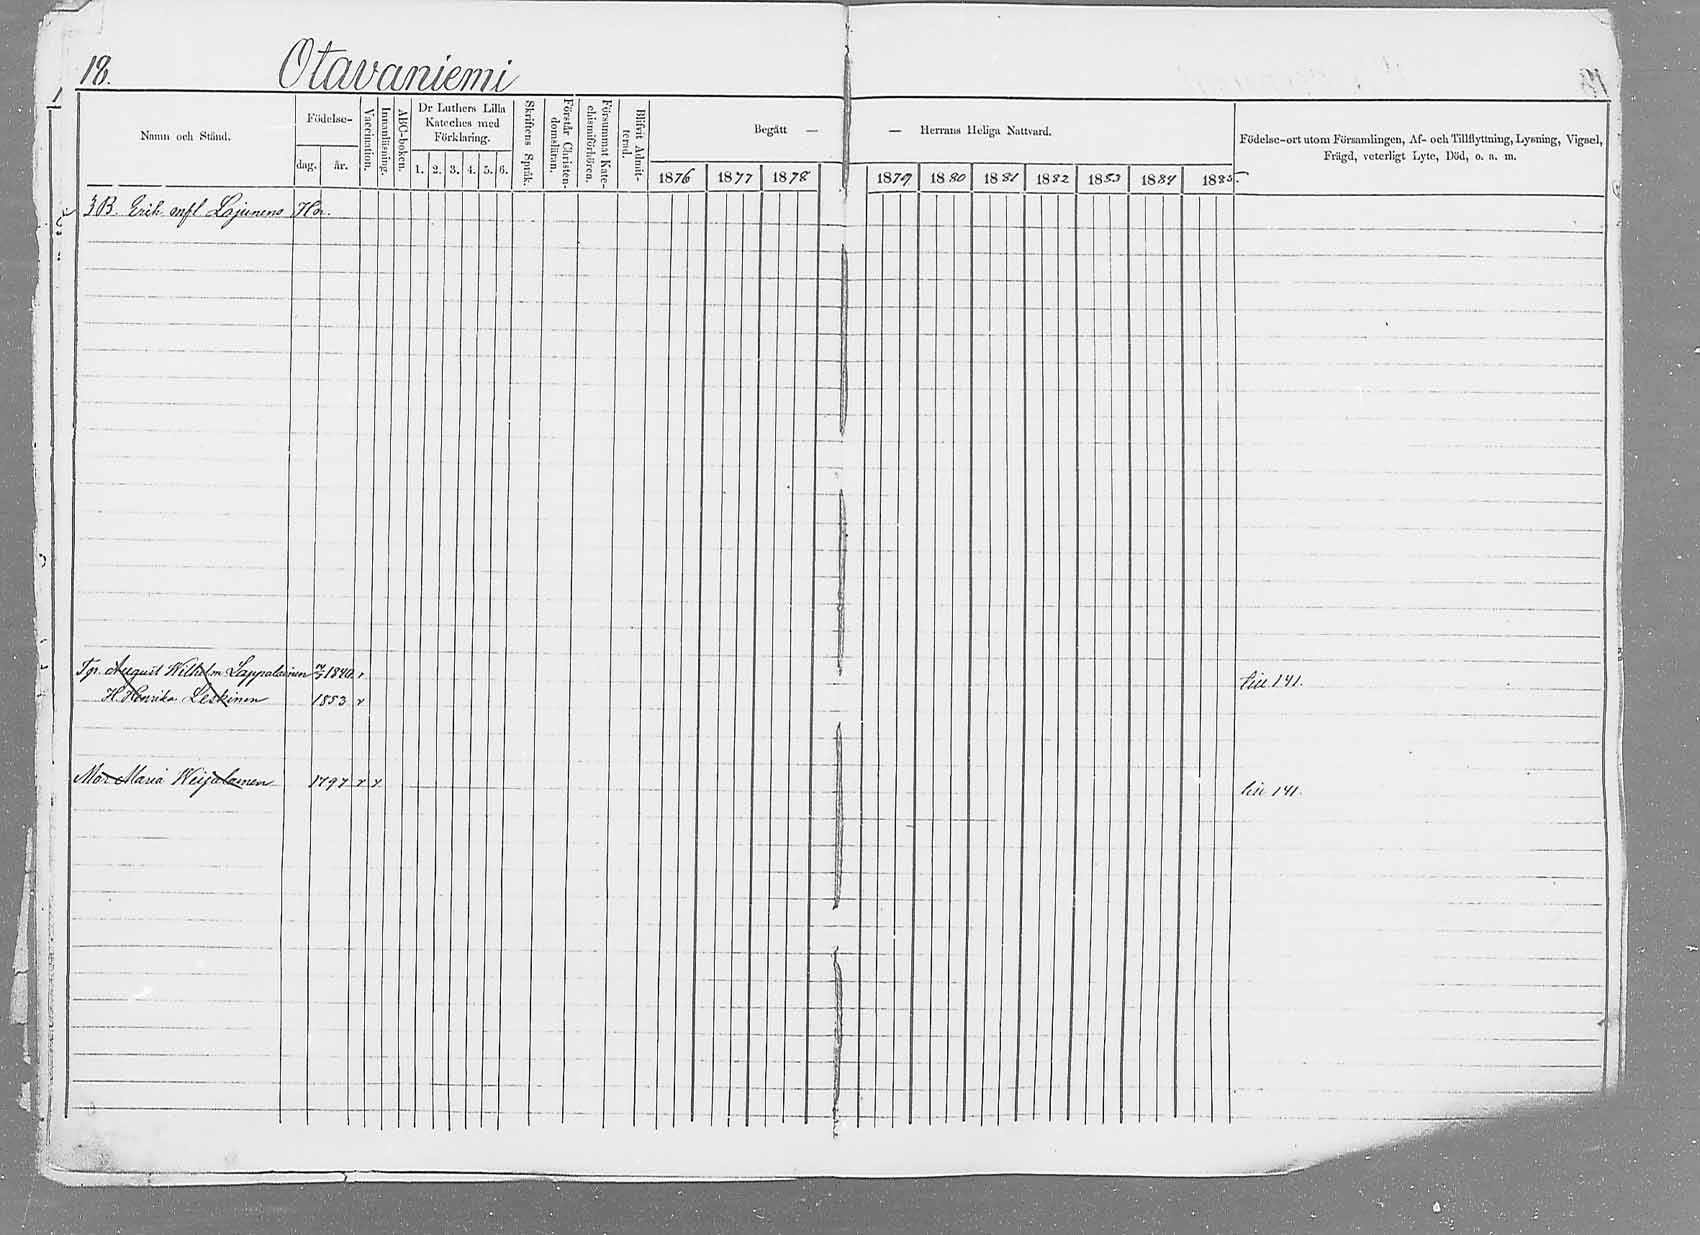 18.
Otavaniemi
Namn och Stånd.
Födelse-
dag. år.
Vaccination.
Innanläsning.
ABC-boken.
Dr Luthers Lilla
Kateches med
Förklaring.
1. 2. 3. 4. 5. 6.
Skriftens Språk.
Förstår Christen-
domsläran.
Försummat Kate-
chismiförhören.
Blifvit Admit-
terad.
Begått — — Herrans Heliga Nattvard.
1876 1877 1878 1879 1880 1881 1882 1883 1884 1885
Födelse-ort utom Församlingen, Af- och Tillflyttning, Lysning, Vigsel,
Frägd, veterligt Lyte, Död, o. a. m.
3 B. Erik mfl Lajunens Hr.
August Wilhelm Lappalainen 1840
141.
H. Henrika Leskinen 1853
Mor Maria Weijalainen 1797
141.